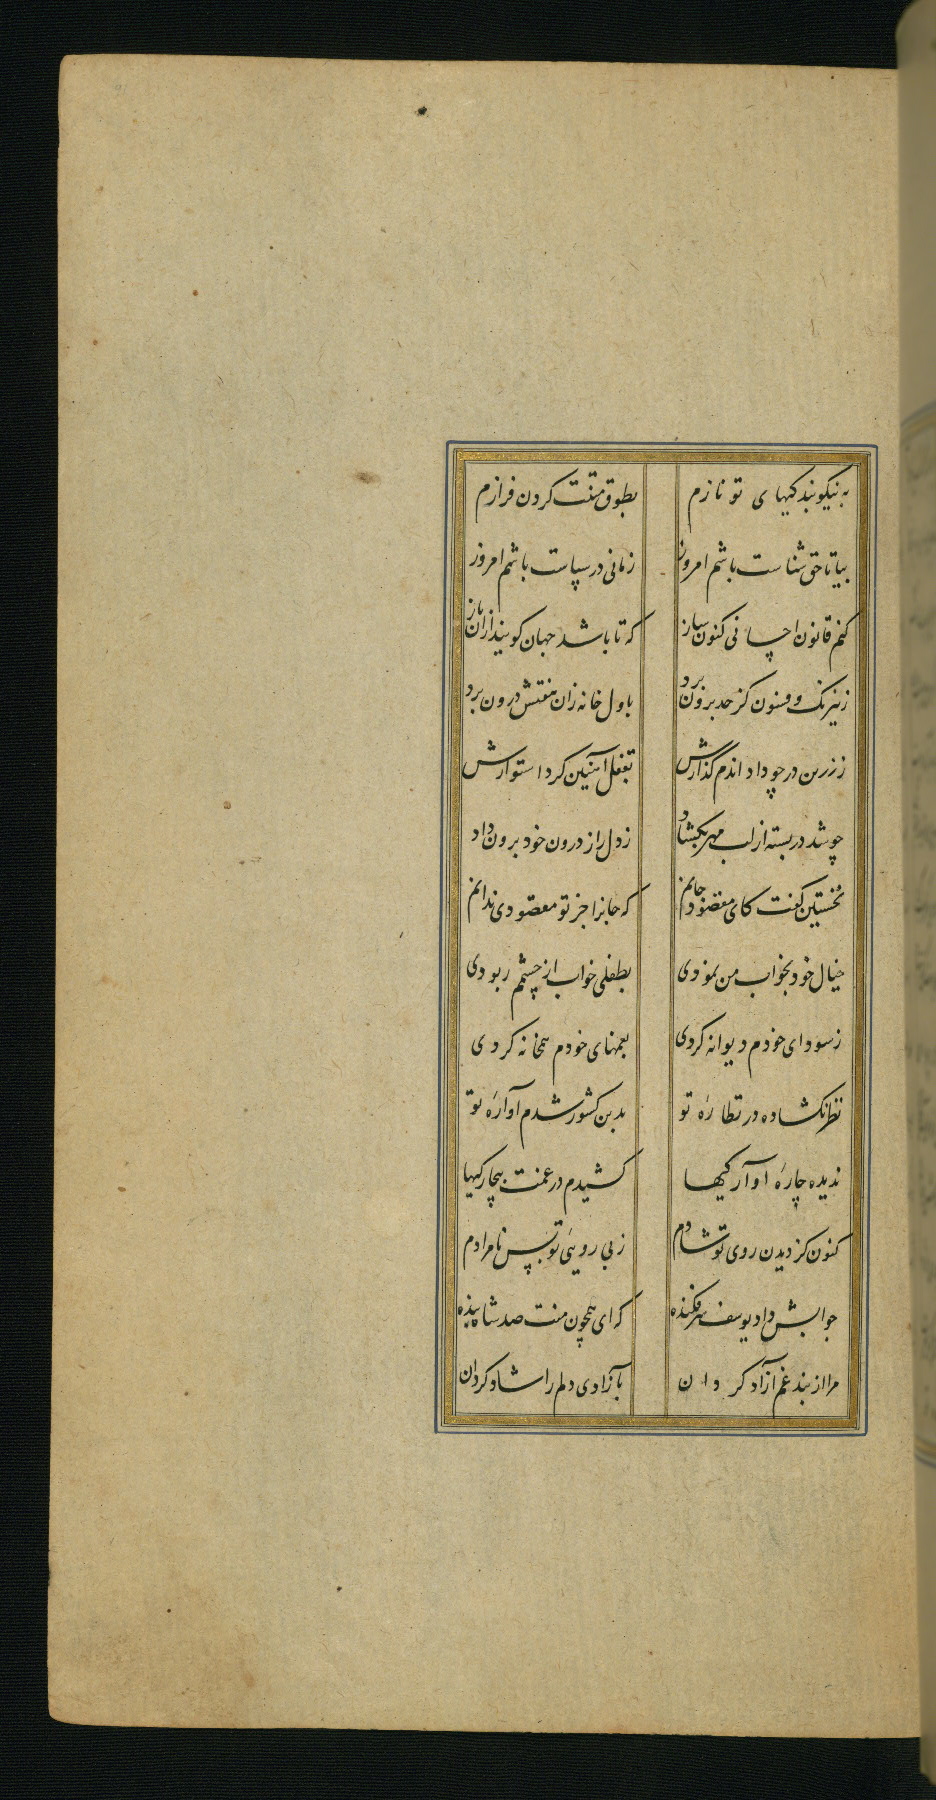 به نیکو بندکیهای تو نازم بطوق منتت کردن فرازم
بیا تا حق شناست باشم امروز زمانی در سپاست باشم امروز
کنم قانون احسانی کنون ساز که تا باشد جهان کویند ازان باز
زنیرنک و فسون کز حد برون برد باول خانه زان هفتش درون برد
ز زرین در چو داد اندم کذارش بقفل آهنین کرد استوارش
چو شد در بسته از لب مهر بکشاد ز دل راز درون خود برون داد
نخستین کفت کای مقصود جانم که جانرا جز تو مقصودی ندانم
خیال خود بخواب من نمودی بطفلی خواب از چشمم ربودی
ز سودای خودم دیوانه کردی بغمهای خودم همخانه کردی
نظر نکشاده در نظارهٔ تو بدین کشور شدم آوارهٔ تو
ندیده چارهٔ آوارکیها کشیدم در غمت بیچارکیها
کنون کز دیدن روی تو شادم ز بی رویئی تو بس نامرادم
جوابش داد یوسف سر فکنده که ای همچون منت صد شاه بنده
مرا از بند غم آزاد کردان بآزادی دلم را شاد کردان